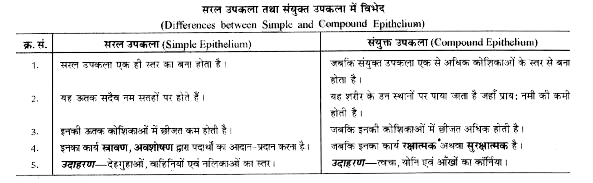 सरल उपकला तथा संयुक्त उपकला में विभेद
(Differences between Simple and Compound Epithelium)
क्र. सं. सरल उपकला (Simple Epithelium) संयुक्त उपकला (Compound Epithelium)
1. सरल उपकला एक ही स्तर का बना होता है। जबकि संयुक्त उपकला एक से अधिक कोशिकाओं के स्तर से बना
होता है।
2. यह ऊतक सदैव नम सतहों पर होते हैं। यह शरीर के उन स्थानों पर पाया जाता है जहाँ प्राय: नमी की कमी
होती है।
3. इनकी ऊतक कोशिकाओं में छीजत कम होती है। जबकि इनकी कोशिकाओं में छीजत अधिक होती है।
4. इनका कार्य स्रावण, अवशोषण द्वारा पदार्थों का आदान-प्रदान करना है। जबकि इनका कार्य रक्षात्मक अथवा सुरक्षात्मक है।
5. उदाहरण—देहगुहाओं, वाहिनियों एवं नलिकाओं का स्तर। उदाहरण—त्वचा, योनि एवं आँखों का कॉर्निया।